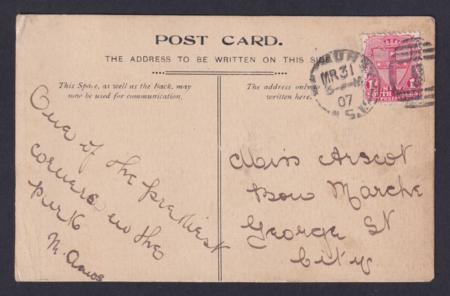 POST CARD.
THE ADDRESS TO BE WRITTEN ON THIS SIDE
This Space, as well as the Back, may
now be used for communication.
The address only
written here.
One of the prettiest
corners in the
park
MR 31
07
Miss Ascot
Bon Marche
George St
City